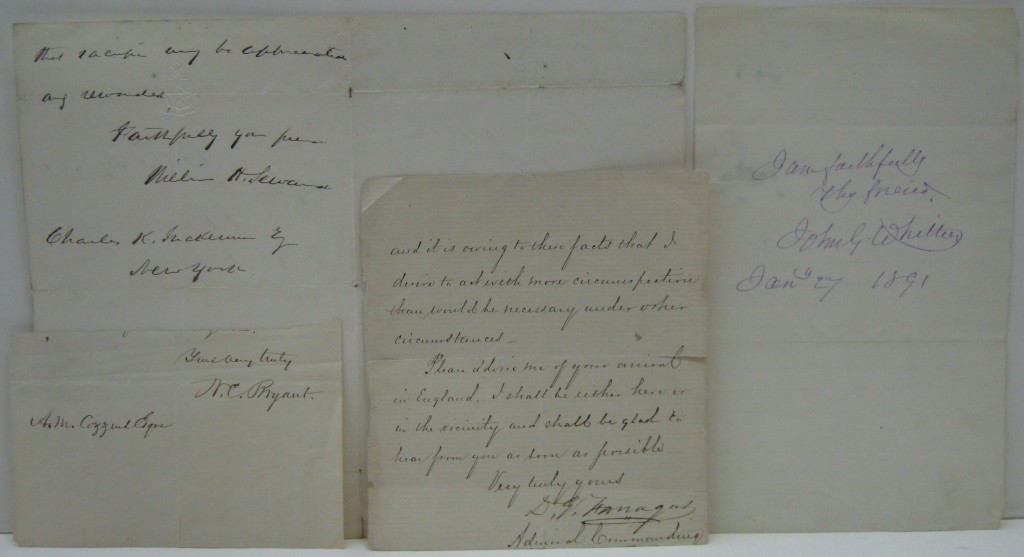 that sacrifice may be appreciated
and rewarded
Faithfully your friend
William H. Seward
Charles K.
New York
Yours very truly
W. C. Bryant.
A. M. Cozzens Esqre
and it is owing to these facts that I
desire to act with more circumspection
than would be necessary under other
circumstances—
Please advise me of your arrival
in England. I shall be either here or
in the vicinity and shall be glad to
hear from you as soon as possible—
Very truly yours
D. G. Farragut
Admiral Commanding
I am faithfully
thy friend.
John G Whittier
Jany 27 1891